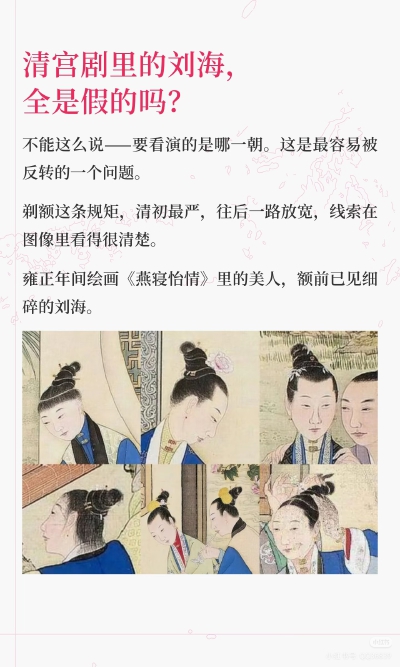 清宫剧里的刘海，
全是假的吗？
不能这么说——要看演的是哪一朝。这是最容易被
反转的一个问题。
剃额这条规矩，清初最严，往后一路放宽，线索在
图像里看得很清楚。
雍正年间绘画《燕寝怡情》里的美人，额前已见细
碎的刘海。